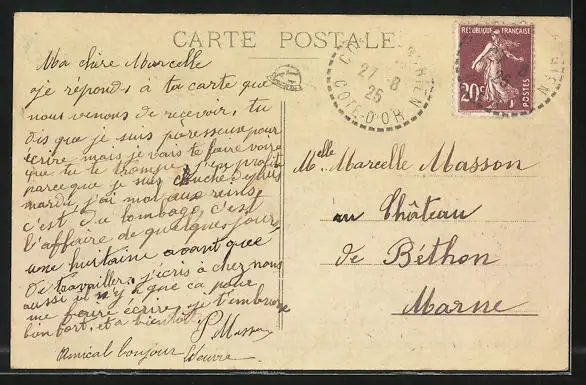 CARTE POSTALE
Ma chère Marcelle
je réponds à ta carte que
nous venons de recevoir, tu
dis que je suis paresseux pour
écrire, mais je vais te faire voir
que tu te trompes, j'en profite
parce que je suis couché depuis
mardi, j'ai mal aux reins
c'est du lombago, c'est
l'affaire de quelques jours
une huitaine avant que
de travailler, j'écris à chez nous
aussi il n'y a que ça pour
me faire écrire, je t'embrasse
bien fort, et à bientôt
P Masson
Amical bonjour
27-8
25
COTE-D'OR
REPUBLIQUE FRANÇAISE
20c
POSTES
Melle Marcelle Masson
au Château
de Béthon
Marne